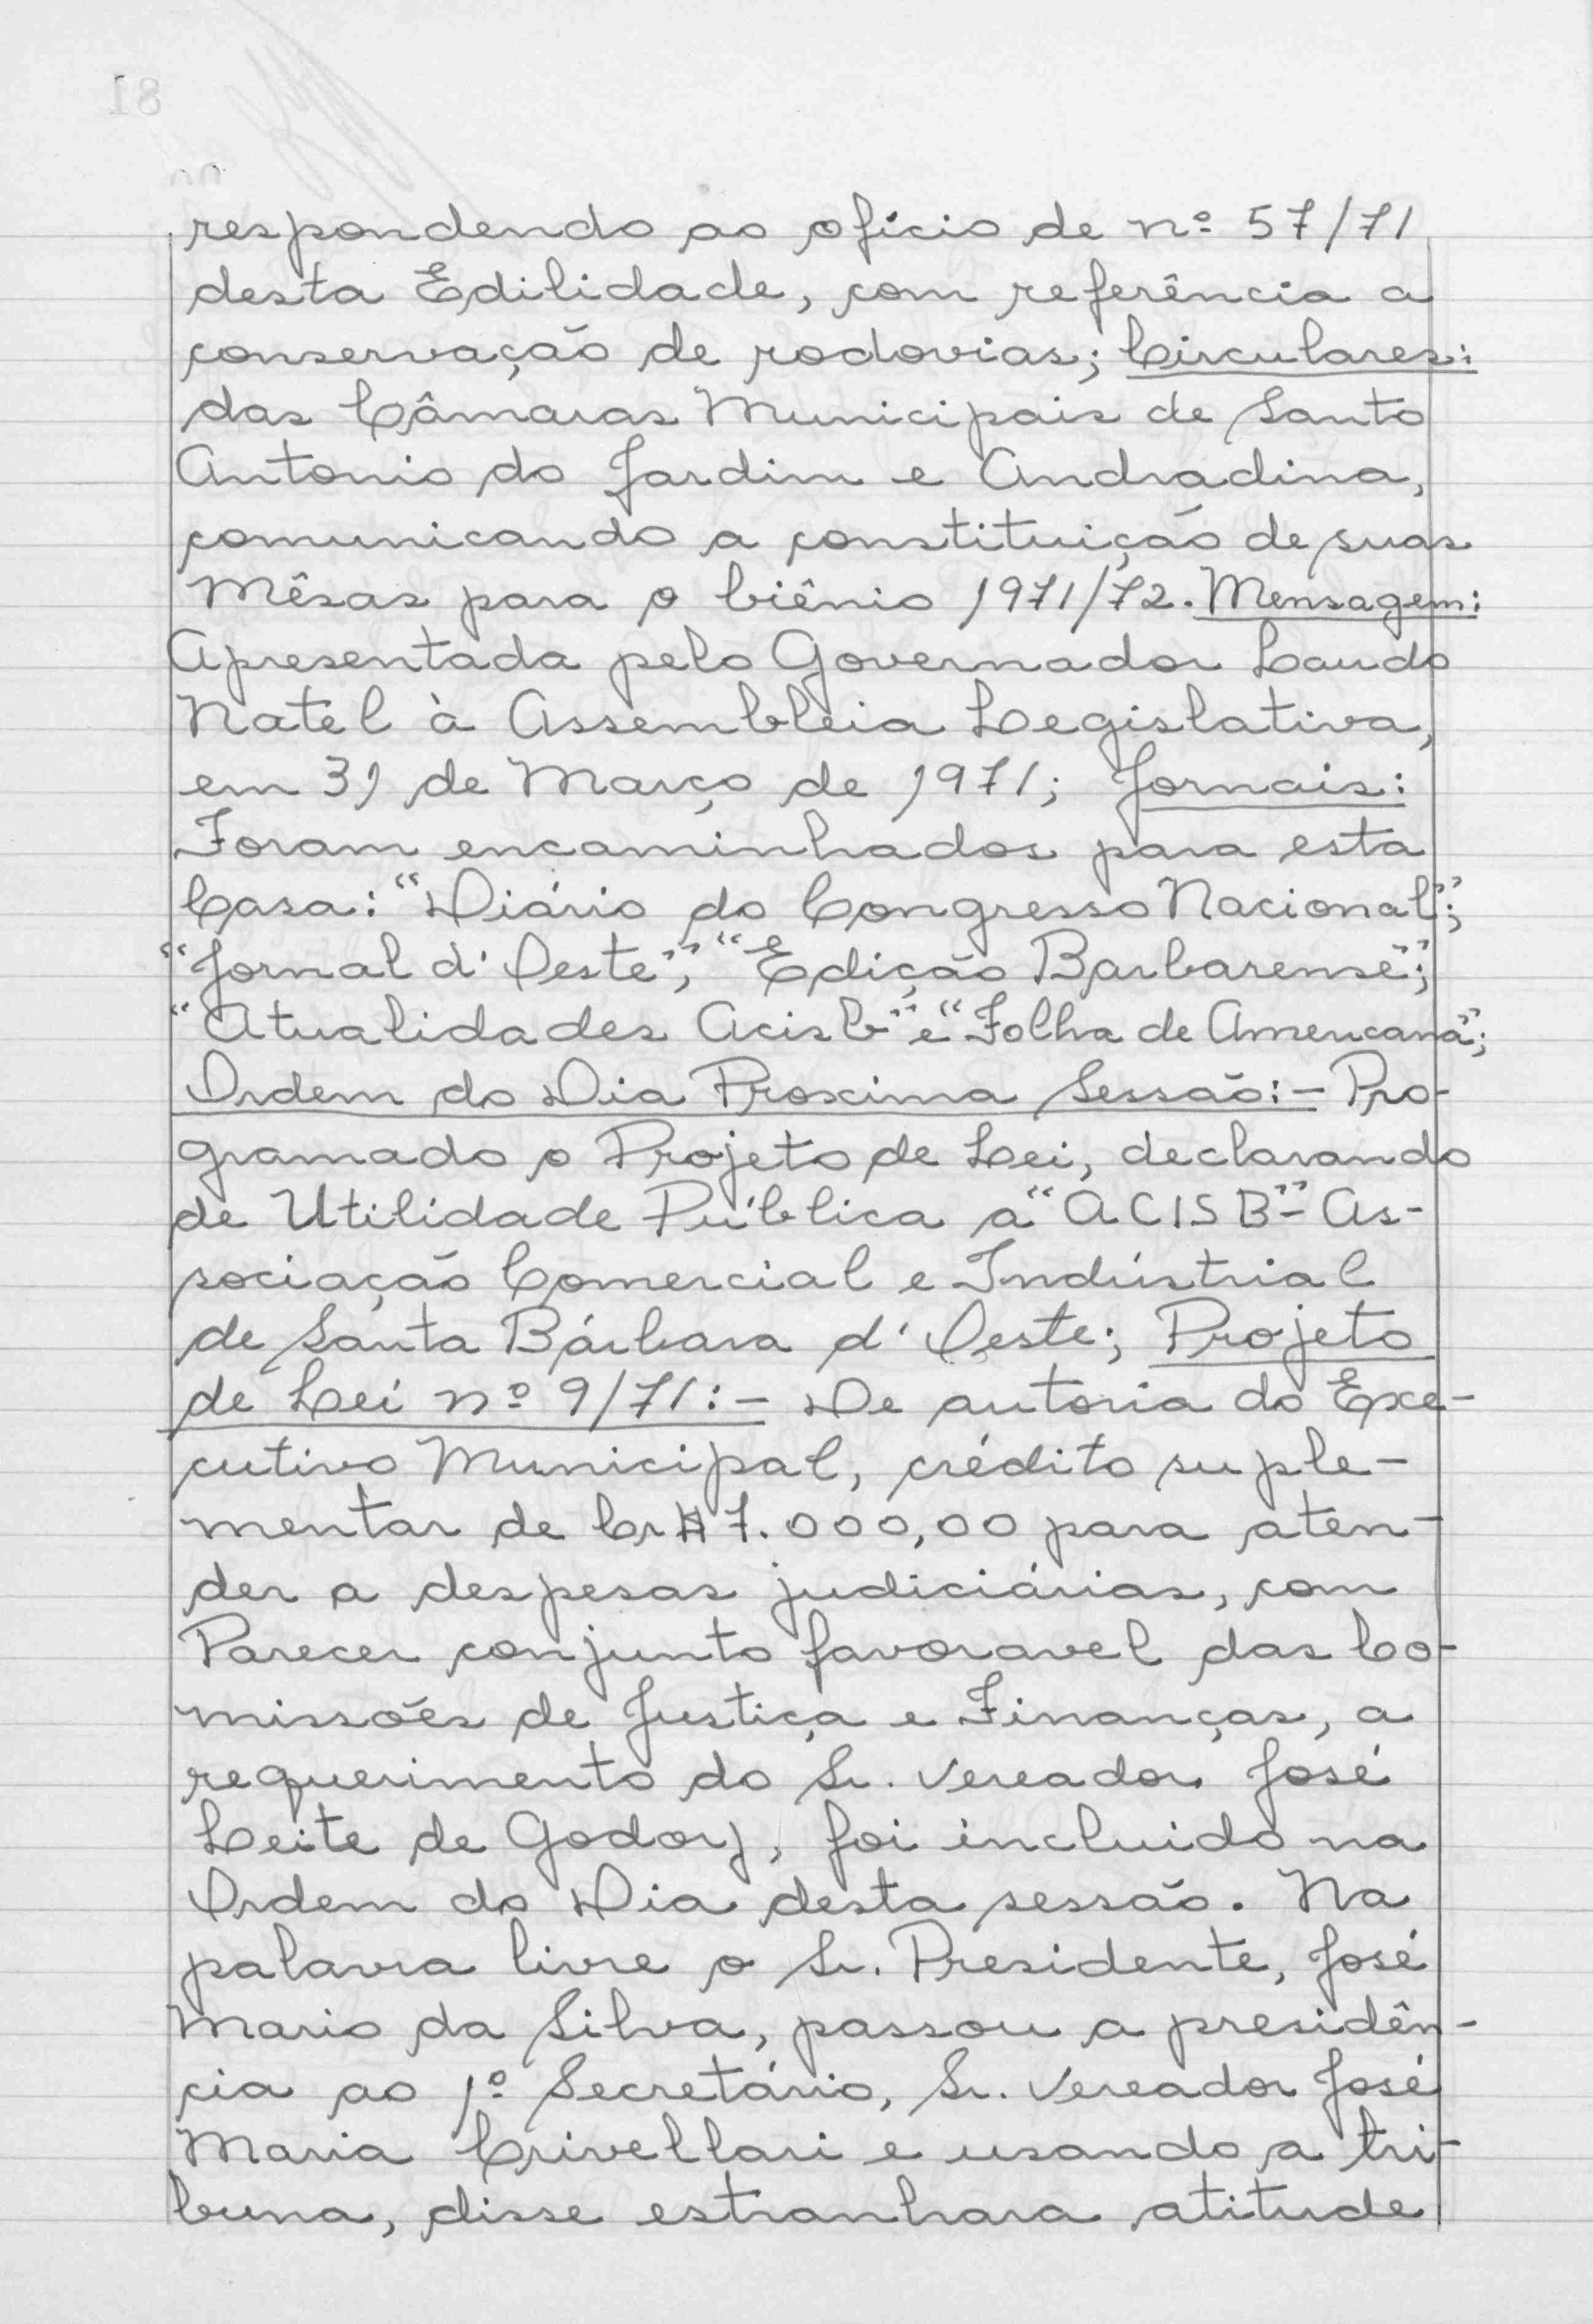 respondendo ao ofício de nº 57/71
desta Edilidade, com referência a
conservação de rodovias; Circulares:
das Câmaras Municipais de Santo
Antonio do Jardim e Andradina,
comunicando a constituição de suas
Mêsas para o biênio 1971/72. Mensagem:
Apresentada pelo Governador Laudo
Natel à Assembleia Legislativa,
em 31 de Março de 1971; Jornais:
Foram encaminhados para esta
Casa: "Diário do Congresso Nacional";
"Jornal d'Oeste", "Edição Barbarense";
"Atualidades Acisb" e "Folha de Americana";
Ordem do Dia Proxima Sessão:- Pro-
gramado o Projeto de Lei, declarando
de Utilidade Pública a "ACISB"- As-
sociação Comercial e Indústrial
de Santa Bárbara d'Oeste; Projeto
de Lei nº 9/71:- De autoria do Exe-
cutivo Municipal, crédito suple-
mentar de Cr$ 7.000,00 para aten-
der a despesas judiciárias, com
Parecer conjunto favoravel das Co-
missões de Justiça e Finanças, a
requerimento do Sr. Vereador José
Leite de Godoy, foi incluido na
Ordem do Dia desta sessão. Na
palavra livre o Sr. Presidente, José
Mario da Silva, passou a presidên-
cia ao 1º Secretário, Sr. Vereador José
Maria Crivellari e usando a tri-
buna, disse estranhara atitude